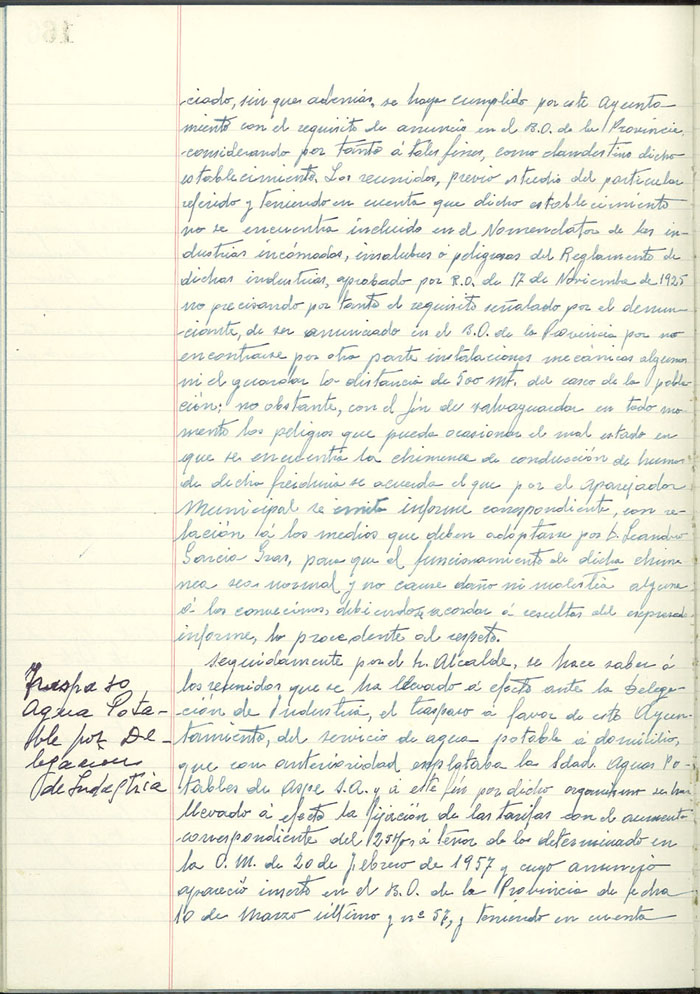 -ciado, sin que además, se haya cumplido por este Ayunta-
miento con el requisito de anuncio en el B.O. de la Provincia,
considerando por tanto á tales fines, como clandestino dicho
establecimiento. Los reunidos, previo estudio del particular
referido y teniendo en cuenta que dicho establecimiento
no se encuentra incluido en el Nomenclator de las in-
dustrias incómodas, insalubres ó peligrosas del Reglamento de
dichas industrias, aprobado por R.O. de 17 de Noviembre de 1925
no precisando por tanto el requisito señalado por el denun-
ciante, de ser anunciado en el B.O. de la Provincia por no
encontrarse por otra parte instalaciones mecánicas algunas
ni el guardar la distancia de 500 mt. del casco de la pobla-
ción; no obstante, con el fin de salvaguardar en todo mo-
mento los peligros que pueda ocasionar el mal estado en
que se encuentra la chimenea de conducción de humos
de dicha freiduria se acuerda el que por el Aparejador
Municipal se emita informe correspondiente, con re-
lación á los medios que deben adoptarse por D. Leandro
Garcia Gras, para que el funcionamiento de dicha chime
nea sea normal y no cause daño ni molestia alguna
á los convecinos, debiendose acordar á resultas del expresado
informe, lo procedente al respeto.
Seguidamente por el Sr. Alcalde, se hace saber á
los reunidos que se ha llevado á efecto ante la Delega-
ción de Industria, el traspaso á favor de este Ayun-
tamiento, del servicio de agua potable á domicilio,
que con anterioridad explotaba la Sdad. Aguas Po-
tables de Aspe S.A. y á este fin por dicho organismo se ha
llevado á efecto la fijación de las tarifas con el aumento
correspondiente del 25% á tenor de lo determinado en
la O.M. de 20 de Febrero de 1957 y cuyo anuncio
apareció inserto en el B.O. de la Provincia de fecha
de Marzo último y nº 57, y teniendo en cuenta
Traspaso
Agua Pota-
ble por De-
legacion
de Industria